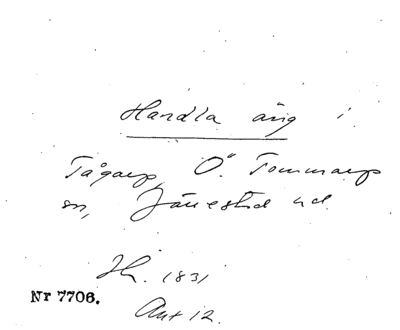 Handla äng i
Tågarp, Ö. Tommarp
sn, Järrestad hd
Ih. 1831
Nr 7706.
Akt 12.